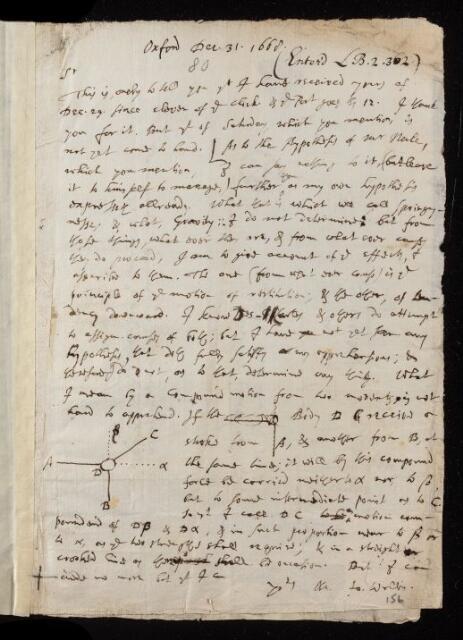 Oxford Dec. 31. 1668.
80 (Entord L.B. 2. 302)
Sr
This is onely to tell you yt I have received yours of
Dec. 29. since eleven of ye clock & ye Post goes by 12. I thank
you for it. But yt of Saturday which you mention, is
not yet come to hand. As to the Hypothesis of Mr Neile,
which you mention, I can say nothing to it, (but leave
it to himself to manage,) further yn as my own hypothesis
expresseth allready. What that is which we call springy-
nesse, & what, Gravity; I do not determine: but from
those things, what ever they are, & from what ever cause
they do proceed, I am to give account of ye effects,
ascribed to them. The one (from wt ever cause) is ye
principle of ye motion of restitution; & the other, of ten-
dency downward. I know Des Cartes, & others do attempt
to assign causes of both; but I have not yet seen any
Hypothesis, that doth fully satisfy my apprehensions; &
therefore do not, as to that, determine any thing. What
I mean by a Compound motion from two movents, is not
hard to apprehend. If the Body D receive a
stroke from B, & another from A, at
the same time; it will by this compound
force be carried neither to α nor to β,
but to some intermediate point as to C.
So yt I call DC motion com-
pounded of Dβ & Dα, & in such proportion near to β or
to α, as ye two strengths shall require; & in a streight or
crooked line as there shall be occasion. But I can
adde no more but yt I
yrs &c. Jo. Wallis.
156
β
C
A
D
α
B